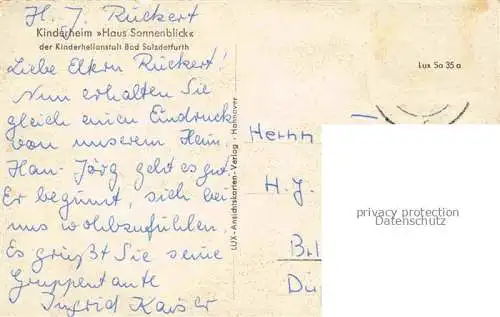 H. J. Rückert
Kinderheim »Haus Sonnenblick«
der Kinderheilanstalt Bad Salzdetfurth
Liebe Eltern Rückert!
Nun erhalten Sie
gleich einen Eindruck
von unserem Heim.
Han-Jörg geht es gut.
Er beginnt, sich bei
uns wohlzufühlen.
Es grüßt Sie seine
Gruppentante
Ingrid Kaiser
LUX-Ansichtskarten-Verlag - Hannover
Lux Sa 35 a
Herrn
H. J.
privacy protection
Datenschutz